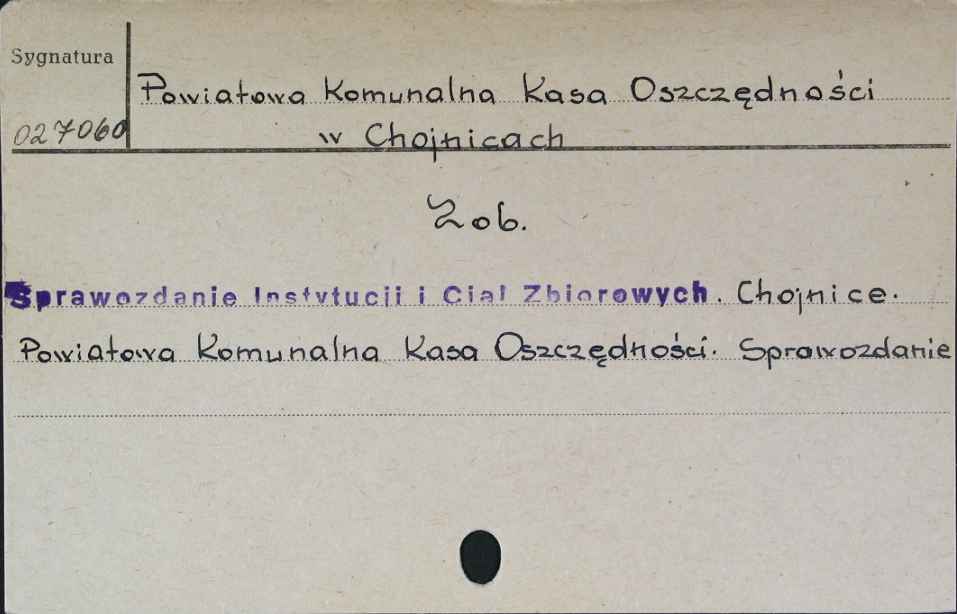 Sygnatura
Powiatowa Komunalna Kasa Oszczędności
027060
w Chojnicach
Zob.
Sprawozdanie Instytucji i Ciał Zbiorowych. Chojnice.
Powiatowa Komunalna Kasa Oszczędności. Sprawozdanie